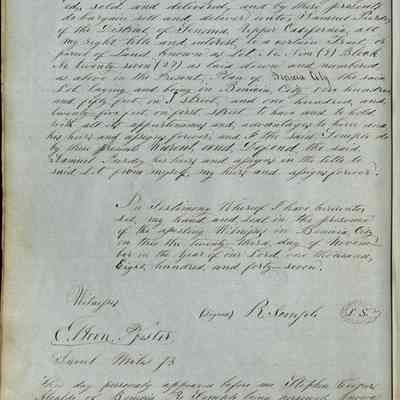 ed, sold and delivered, and by these presents
do bargain sell and deliver unto Samuel Purdy
of the District of Sonoma Upper California, all
my right title and interest, in a certain Tract or
parcel of Land Known as Lot No Ten (10) Block
No twenty seven (27) as laid down and numbered
as above in the Present, Plan of Benicia City the said
Lot laying and being in Benicia City One hundred
and fifty feet on I street, and one hundred, and
twenty-five feet, on first street To have and to hold
with all its appurtenances and, advantages to him
his heirs and assigns forever, and I the said Semple do
by these presents Warent, and, Defend the said
Samuel Purdy his heirs and assigns in the title to
said Lot from myself, my heirs and assigns forever.
In Testimony Whereof I have hereunto
set, my hand and Seal in the presence
of the assisting Witness, in Benicia City
on this the twenty-third, day of Novem
ber in the Year of our Lord one thousand,
Eight, hundred, and forty-seven.
Witness
(Signed) R Semple L.S.
Saml
This day personaly appeared before me Stephen Cooper
Alcalde of Benicia R. Semple being personaly known